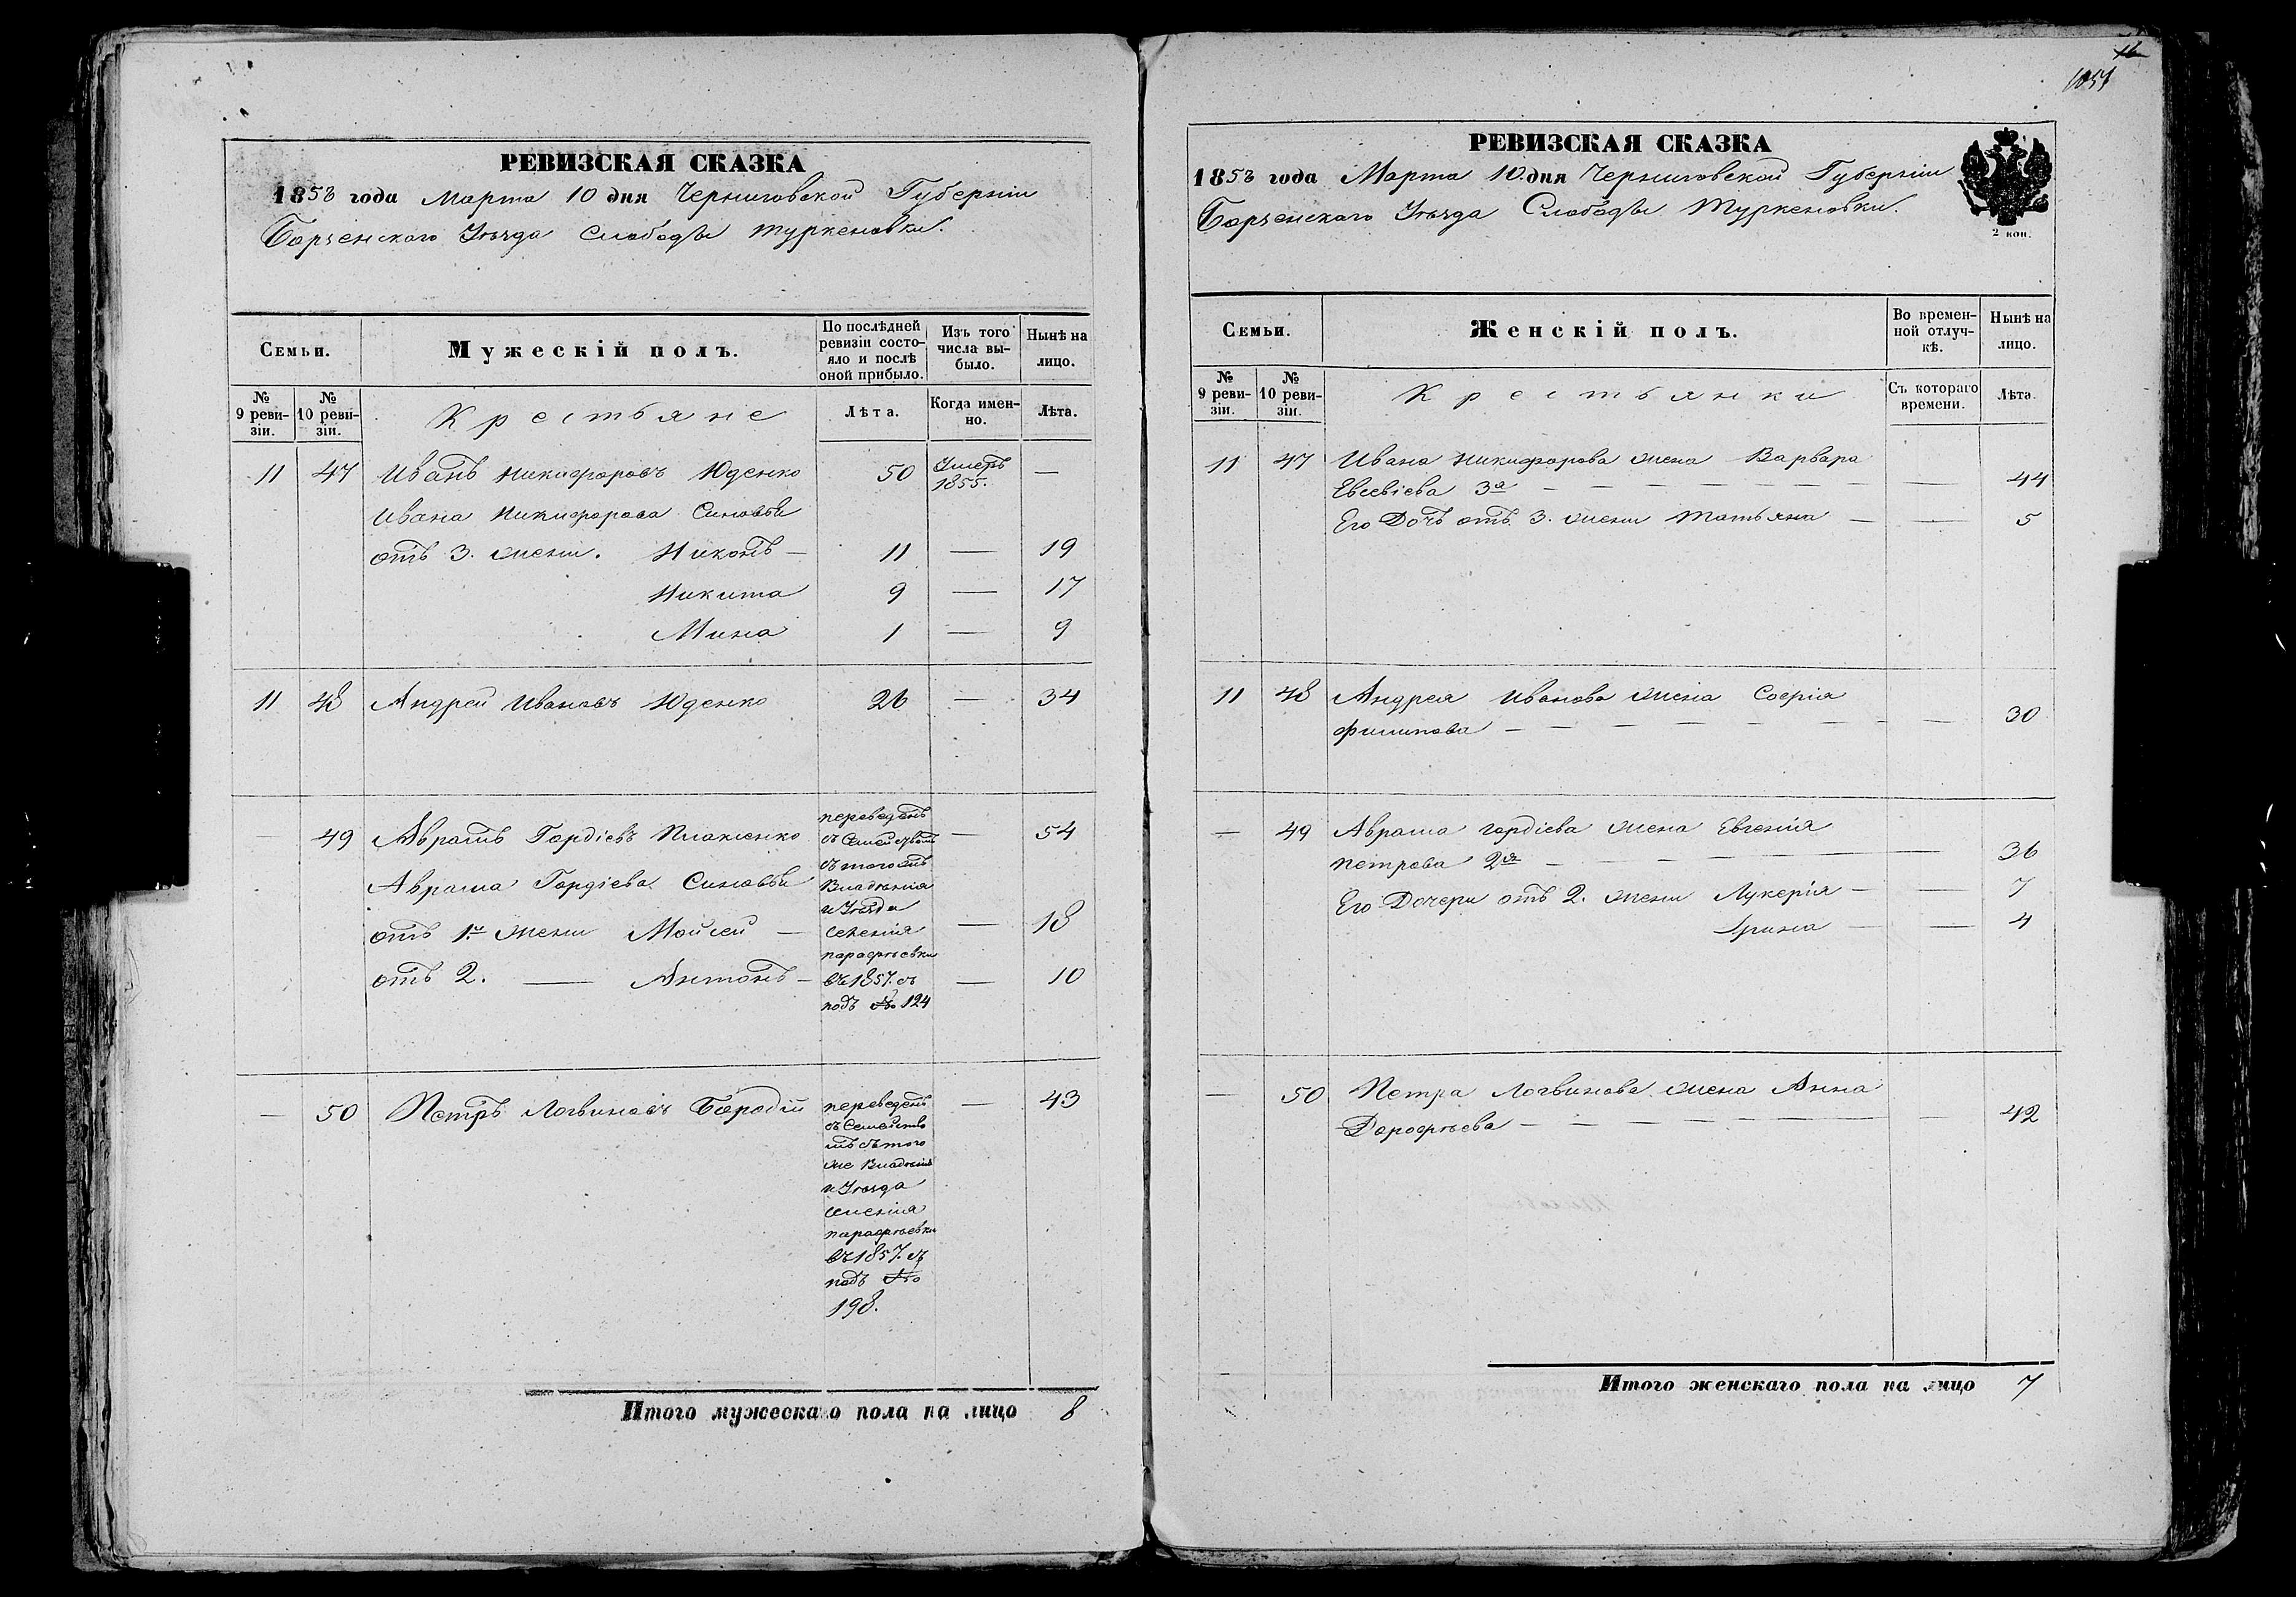 16
1051
РЕВИЗСКАЯ СКАЗКА
1858 года Марта 10 дня Черниговской Губерніи
Борзенскаго Уѣзда Слободы Туркеновки.
Семьи.
Мужескій полъ.
По послѣдней ревизіи состояло и послѣ оной прибыло.
Изъ того числа выбыло.
Нынѣ на лицо.
№ 9 ревизіи.
№ 10 ревизіи.
Крестьяне
Лѣта.
Когда именно.
Лѣта.
11 47 Иванъ Никифоровъ Юденко 50 Умеръ 1855. —
Ивана Никифорова Сыновья
отъ 3. жены. Никонъ — 11 — 19
Никита 9 — 17
Мина 1 — 9
11 48 Андрей Ивановъ Юденко 26 — 34
— 49 Аврамъ Гордіевъ Плаженко — 54
Аврама Гордіева Сыновья
отъ 1й жены Мойсей — — 18
отъ 2. — Антонъ — — 10
переведенъ
съ Семействомъ
съ того жъ
Владѣнія
и Уѣзда
селенія
парафѣевки
въ 1857. съ
подъ № 124
— 50 Петръ Логвиновъ Бородій — 43
переведенъ
съ Семейство
мъ съ того
же Владѣнія
и Уѣзда
селенія
парафѣевки
въ 1857. съ
подъ №
198.
Итого мужескаго пола на лицо 8
РЕВИЗСКАЯ СКАЗКА
1858 года Марта 10. дня Черниговской Губерніи
Борзенскаго Уѣзда Слободы Туркеновки.
2 коп.
Семьи.
Женскій полъ.
Во временной отлучкѣ.
Нынѣ на лицо.
№ 9 ревизіи.
№ 10 ревизіи.
Крестьянки
Съ котораго времени.
Лѣта.
11 47 Ивана Никифорова жена Варвара
Евсевіева 3я — — 44
Его Дочь отъ 3. жены Татьяна — — 5
11 48 Андрея Иванова жена Софія
Филипова — — 30
— 49 Аврама Гордіева жена Евгенія
Петрова 2я — — 36
Его Дочери отъ 2. жены Лукерія — — 7
Арина — — 4
— 50 Петра Логвинова жена Анна
Дорофѣева — — 42
Итого женскаго пола на лицо 7